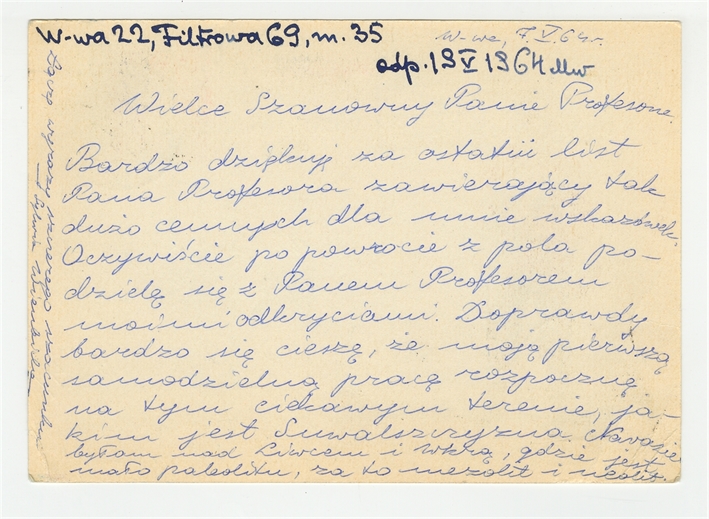 W-wa 22, Filtrowa 69, m. 35
W-wa, 7.V.64 r.
odp. 19 V 1964 Mw
Wielce Szanowny Panie Profesorze.
Bardzo dziękuję za ostatni list
Pana Profesora zawierający tak
dużo cennych dla mnie wskazówek.
Oczywiście po powrocie z pola po-
dzielę się z Panem Profesorem
moimi odkryciami. Doprawdy
bardzo się cieszę, że moją pierwszą
samodzielną pracę rozpocznę
na tym ciekawym terenie, ja-
kim jest Suwalszczyzna. Narazie
byłam nad Liwcem i Wkrą, gdzie jest
mało paleolitu, za to mezolit i neolit.
Łączę wyrazy szczerego szacunku